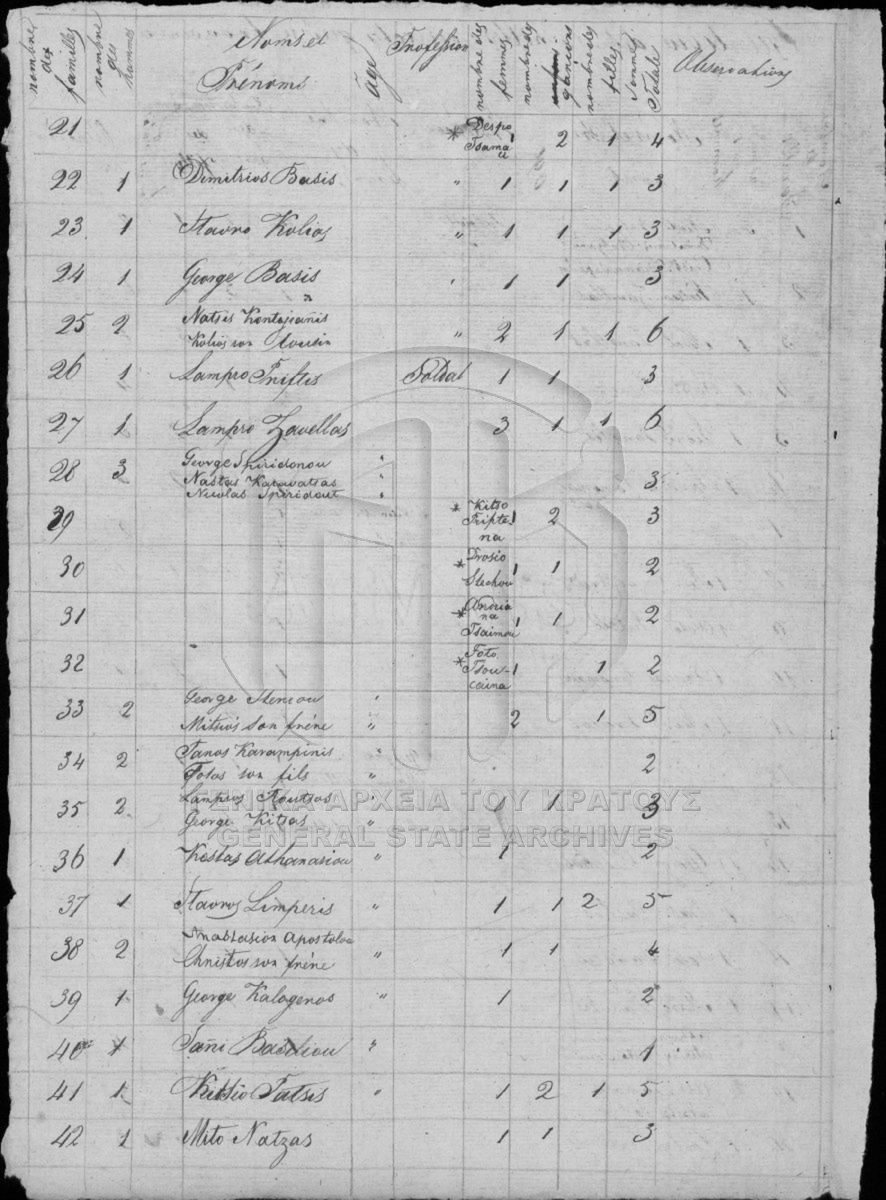 nombre des familles nombre des hommes Noms et Prénoms âge Profession nombre des femmes nombre des garçons nombre des filles Somme Totale Observations
21 * Despo Tsama 1 2 1 4
22 1 Dimitrios Basis " 1 1 1 3
23 1 Stavro Kolios " 1 1 1 3
24 1 George Basis " 1 1 3
25 2 Natsis Kontojanis " 2 1 1 6
Kolios son cousin
26 1 Lampro Priftis Soldat 1 1 3
27 1 Lampro Zavellas 3 1 1 6
28 3 George Spiridonou " 3
Nastas Karavatsas "
Nicolas Spiridont "
29 * Kitso Triptena 1 2 3
30 * Drosio Stechou 1 1 2
31 * Andriana Tsaimou 1 1 2
32 * Foto Tsoucaina 1 1 2
33 2 George Steriou " 2 1 5
Mitsios son frére "
34 2 Tanos Karampinis " 2
Fotos son fils "
35 2 Lampros Floutsos " 1 1 3
George Kitsos "
36 1 Kostas Athanasiou " 1 2
37 1 Stavros Limperis " 1 1 2 5
38 2 Anastasion Apostolou " 1 1 4
Christos son frére
39 1 George Kalogeros " 1 2
40 1 Iani Basiliou " 1
41 1 Kitsio Tatsis " 1 2 1 5
42 1 Mito Natzas 1 1 3
ΓΕΝΙΚΑ ΑΡΧΕΙΑ ΤΟΥ ΚΡΑΤΟΥΣ
GENERAL STATE ARCHIVES